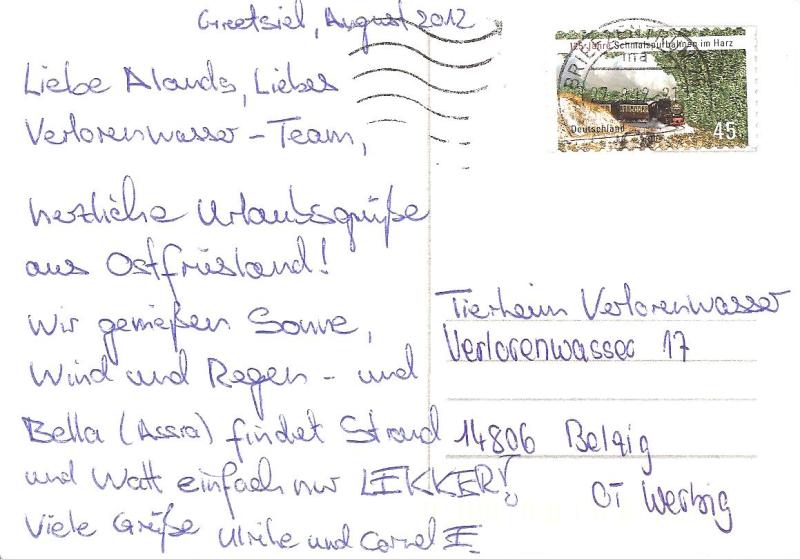 Greetsiel, August 2012
Liebe Alands, Liebes
Verlorenwasser-Team,
herzliche Urlaubsgrüße
aus Ostfriesland!
Wir genießen Sonne,
Wind und Regen - und
Bella (Assra) findet Strand
und Watt einfach nur LEKKER!
Viele Grüße Ulrike und Cornel E.
125 Jahre Schmalspurbahnen im Harz
Deutschland
45
BRIEFZENTRUM
Tierheim Verlorenwasser
Verlorenwasser 17
14806 Belzig
OT Werbig